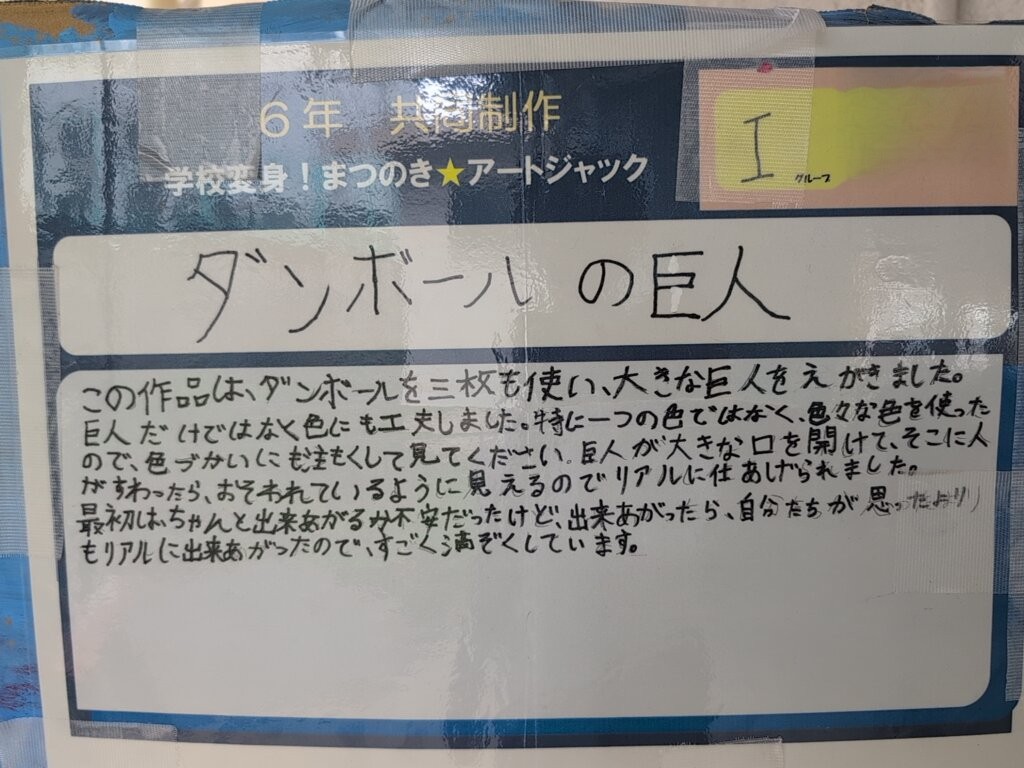 6年 共同制作
学校変身！まつのき★アートジャック
I グループ
ダンボールの巨人
この作品は、ダンボールを三枚も使い、大きな巨人をえがきました。
巨人だけではなく色にも工夫しました。特に一つの色ではなく、色々な色を使った
ので、色づかいにも注もくして見てください。巨人が大きな口を開けて、そこに人
がすわったら、おそわれているように見えるのでリアルに仕あげられました。
最初は、ちゃんと出来あがるか不安だったけど、出来あがったら、自分たちが思ったより
もリアルに出来あがったので、すごく満ぞくしています。